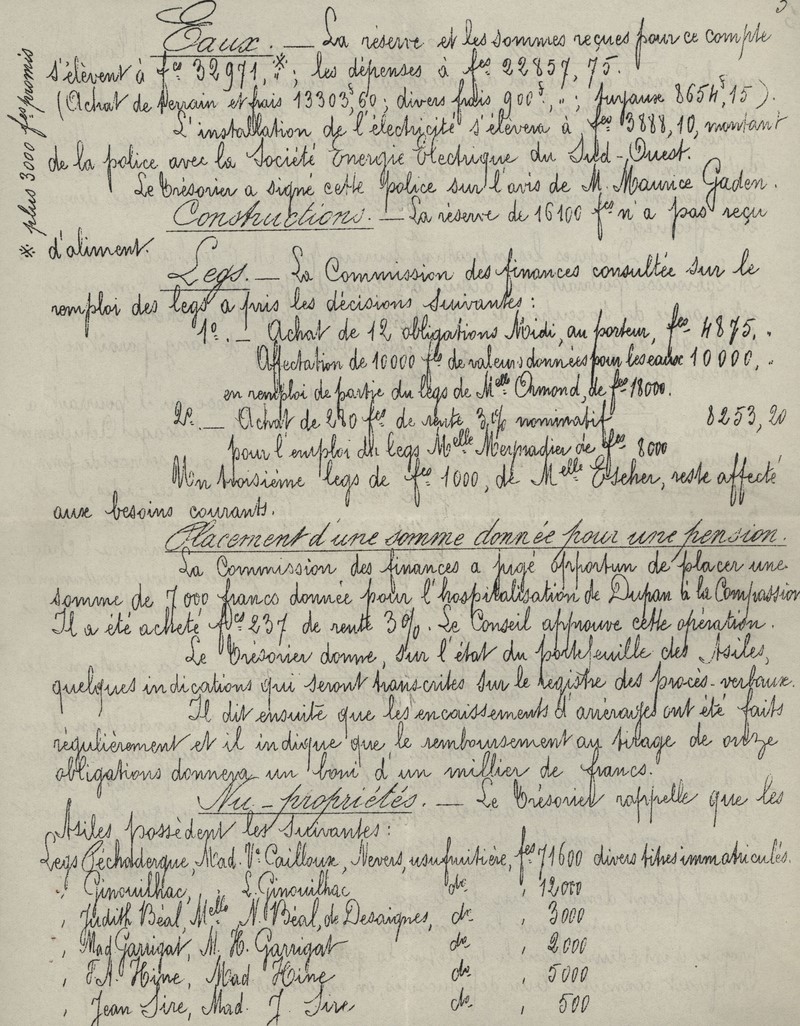 3
Eaux. — La réserve et les sommes reçues pour ce compte
s'élèvent à fcs 32971, „ * ; les dépenses à fcs 22857, 75.
(Achat de terrain et frais 13303f, 60 ; divers frais 900f, „ ; tuyaux 8654f, 15).
L'installation de l'électricité s'élèvera à fcs 3888,10, montant
de la police avec la Société Energie Electrique du Sud-Ouest.
Le Trésorier a signé cette police sur l'avis de M. Maurice Gaden.
Constructions. — La réserve de 16100 fcs n'a pas reçu
d'aliment.
* plus 3000 fcs promis
Legs. — La Commission des finances consultée sur le
remploi des legs a pris les décisions suivantes :
1o. — Achat de 12 obligations Midi, au porteur, fcs 4875, „
Affectation de 10000 fcs de valeurs données pour les eaux 10000, „
en remploi de partie du legs de Melle Ormond, de fcs 18000.
2o. — Achat de 280 fcs de rente 3% nominatif 8253,20
pour l'emploi du legs Melle Mespradier de fcs 8000
Un troisième legs de fcs 1000, de Melle Escher, reste affecté
aux besoins courants.
Placement d'une somme donnée pour une pension.
La Commission des finances a jugé opportun de placer une
somme de 7000 francs donnée pour l'hospitalisation de Dupan à la Compassion
Il a été acheté fcs 237 de rente 3%. Le Conseil approuve cette opération.
Le Trésorier donne, sur l'état du portefeuille des Asiles,
quelques indications qui seront transcrites sur le registre des procès-verbaux.
Il dit ensuite que les encaissements d'arrérages ont été faits
régulièrement et il indique que le remboursement au tirage de onze
obligations donnera un boni d'un millier de francs.
Nu-propriétés. — Le Trésorier rappelle que les
Asiles possèdent les suivantes :
Legs Péchadergue, Mad. Ve Cailloux, Nevers, usufruitière, fcs 71600 divers titres immatriculés.
„ Ginouilhac, „ L. Ginouilhac do „ 12000
„ Judith Béal, Melle N. Béal, de Desaignes, do „ 3000
„ Mad Garrigat, M. H. Garrigat do „ 2000
„ F.A. Hine, Mad Hine do „ 5000
„ Jean Sire, Mad. J. Sire do „ 500